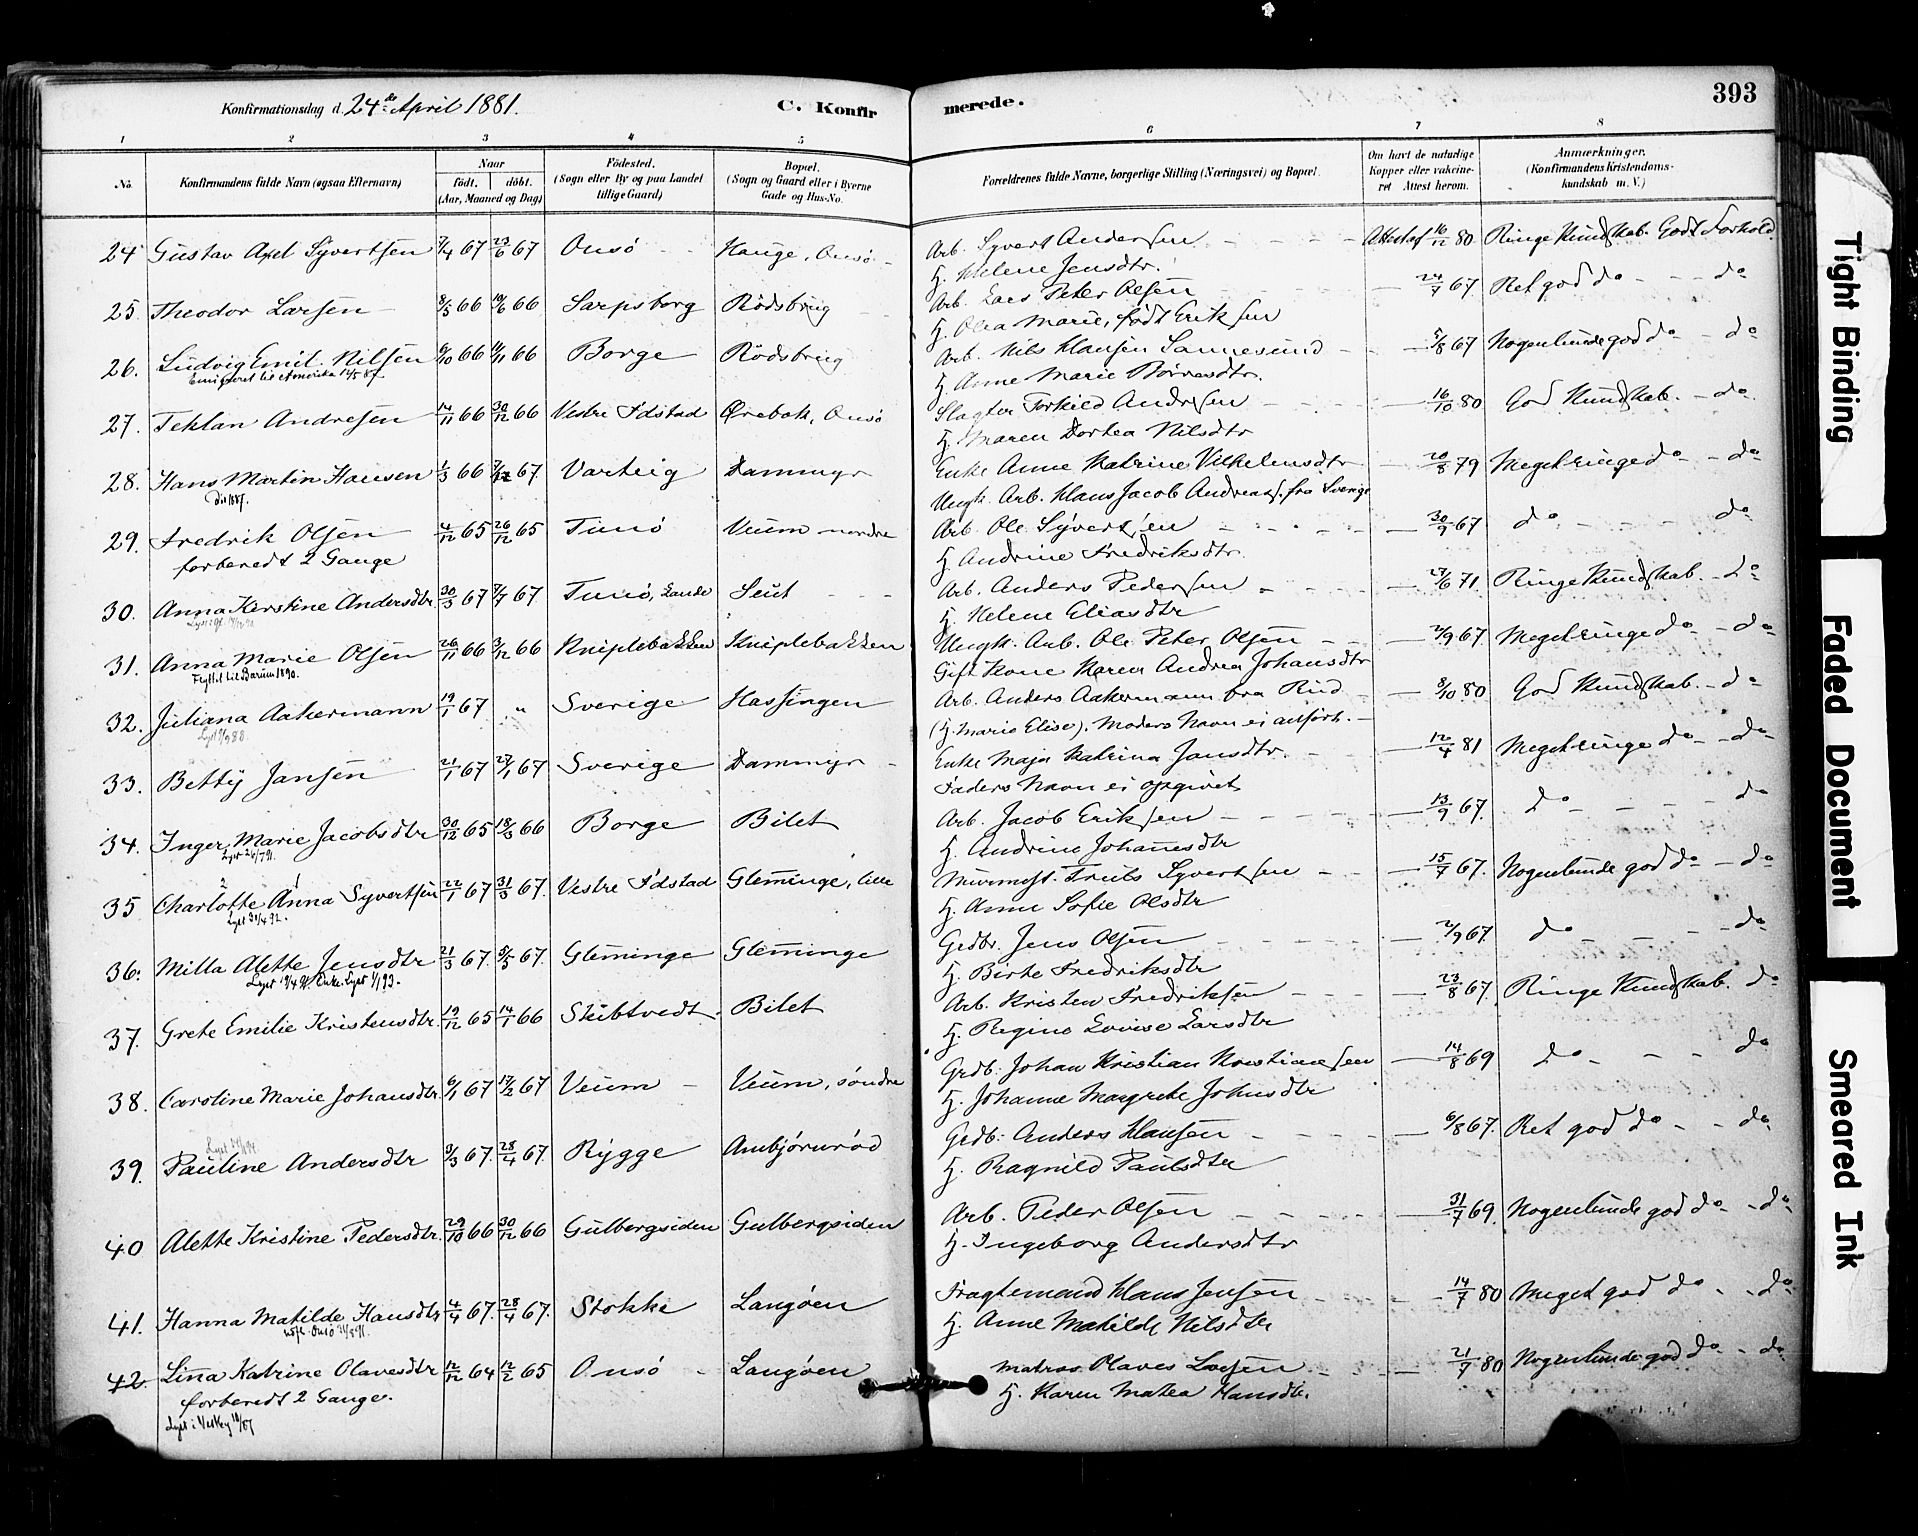 Konfirmationsdag d. 24de April 1881.
C. Konfirmerede.
393
1 2 3 4 5 6 7 8
No. Konfirmandens fulde Navn (ogsaa Efternavn) Naar født. døbt. (Aar, Maaned og Dag) Fødested. (Sogn eller By og paa Landet tillige Gaard) Bopæl. (Sogn og Gaard eller i Byerne Gade og Hus-No. Forældrenes fulde Navne, borgerlige Stilling (Næringsvei) og Bopæl. Om havt de naturlige Kopper eller vaccineret Attest herom. Anmærkninger. (Konfirmandens Kristendomskundskab m. V.)
24 Gustav Axel Syvertsen 7/4 67 23/6 67 Onsø Hauge, Onsø Arb. Syvert Andersen Attest af 16/12 80. Ringe Kundskab. Godt Forhold.
H. Helene Jensdtr.
25. Theodor Larsen 8/5 66 10/6 66 Sarpsborg Rødsbrug Arb. Lars Peter Olsen 24/7 67 Ret god do do
H. Olea Marie, født Eriksen
26. Ludvig Emil Nilsen 6/10 66 11/11 66 Borge Rødsbrug Arb. Nils Hansen Sannesund 5/8 67 Nogenlunde god do do
Emigreret til Amerika H. Anne Marie
27. Teklan Andresen 14/11 66 30/12 66 Vestre Idstad Ørebæk, Onsø Slagter Torkild Andresen 16/10 80 God Kundskab. do
H. Maren Dortea Nilsdtr
28. Hans Martin Hansen 1/3 66 67. Varteig Dammyr Enke Anne Katrine Vilhelmsdtr 20/8 79 Meget ringe do do
Død 1887. Ungk. Arb. Hans Jacob Andreas. fra Sverige
29. Fredrik Olsen 4/12 65 26/12 65 Tunø Veum nordre Arb. Ole Syvertsen 30/9 67 do do
forberedt 2 Gange H. Andrine Fredriksdtr.
30. Anna Kirstine Andersdtr 30/3 67 7/7 67 Tunø, Lande Seut Arb. Anders Pedersen 27/6 71. Ringe Kundskab. do
H. Helene Eliasdtr
31. Anna Marie Olsen 26/11 66 3/12 66 Kniplebakken Kniplebakken Ungk. Arb. Ole Peter Olsen 2/9 67 Meget ringe do do
Flyttet til Bærum 1890. Gift Kone Karen Andrea Johansdtr
32. Juliana Aakermann 19/1 67 " Sverige Hassingen Arb. Anders Aakermann fra Rud 8/10 80 God Kundskab. do
(H. Marie Elise). Moders Navn ei anført.
33. Betty Jansen 21/1 67 27/1 67 Sverige Dammyr Enke Maja Katrina Jansdtr. 12/4 81 Meget ringe do do
Faders Navn ei opgivet
34. Inger Marie Jacobsdtr 30/12 65 18/3 66 Borge Bilet Arb. Jacob Eriksen 13/9 67. do do
Lyst 26/7 91. H. Andrine Johannesdtr
35 Charlotte Anna Syvertsen 22/1 67 31/3 67. Vestre Idstad Glemminge, lille Murmest. Truls Syvertsen 15/7 67. Nogenlunde god do do
Lyst 31/4 92. H. Anne Sofie Olsdtr
36. Milla Alette Jensdtr 21/3 67. 5/5 67. Glemminge Glemminge Grdbr. Jens Olsen 2/9 67. do do
H. Birte Fredriksdtr
37. Grete Emilie Kristensdtr. 19/12 65 14/1 66 Stubtvedt Bilet Arb. Kristen Fredriksen 23/8 67. Ringe Kundskab. do
H. Regine Lovise Larsdtr
38. Caroline Marie Johansdtr. 6/1 67 17/2 67 Veum Veum, søndre Grdb: Johan Kristian Kristiansen 14/8 69 do do
H. Johanne Margrete Johnsdtr
39. Pauline Andersdtr 3/3 67. 28/4 67. Rygge Ambjørnrød Grdb: Anders Hansen 6/8 67. Ret god do do
H. Ragnild Paulsdtr
40 Alette Kristine Pedersdtr. 29/10 66 30/12 66 Gulbergsiden Gulbergsiden Arb. Peder Olsen 31/7 69. Nogenlunde god do do
H. Ingeborg Andersdtr
41. Hanna Matilde Hansdtr 4/4 67. 28/4 67. Stokke Langøen Fragtemand Hans Jensen 14/7 80 Meget god do do
H. Anne Matilde Nilsdtr
42. Lina Katrine Olavesdtr 12/12 64 12/2 65 Onsø Langøen Matros Olaves Larsen 21/7 80 Nogenlunde god do do
forberedt 2 Gange. H. Karen Matea Hansdtr.
Tight Binding
Faded Document
Smeared Ink